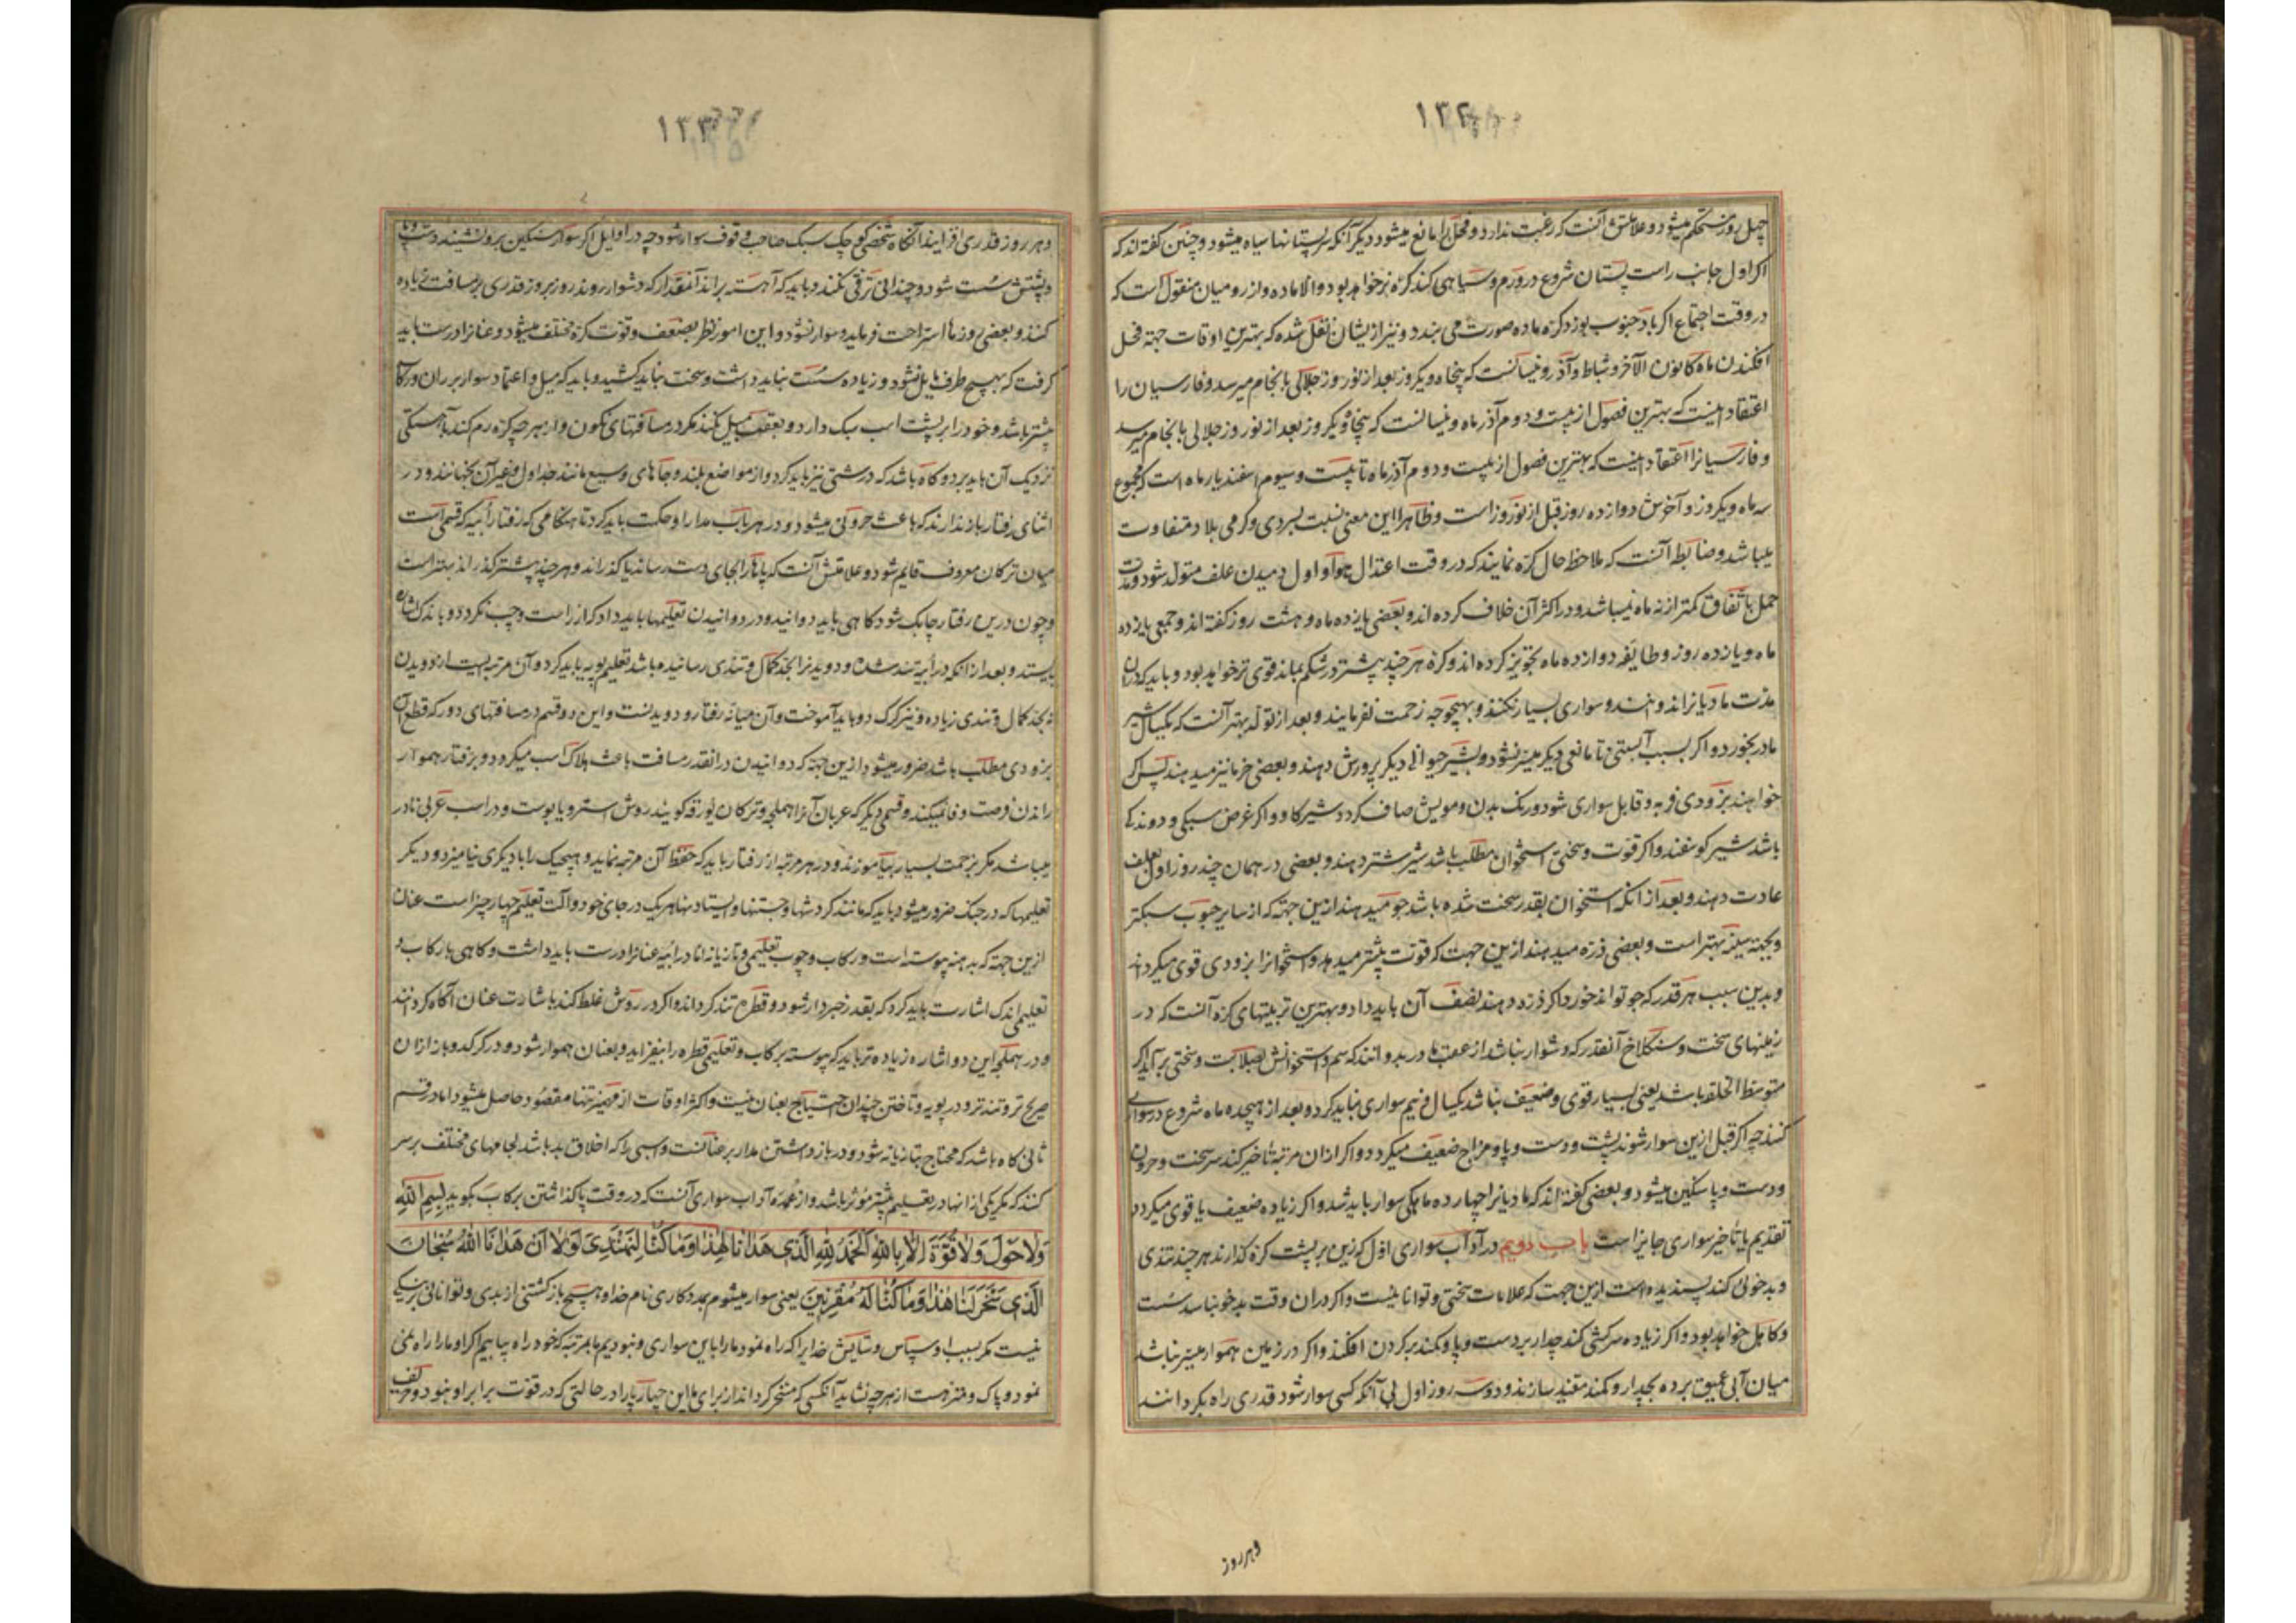 ۱۳۲
چهل روز مستحکم میشود و علامتش آنست که رغبت ندارد و فحل را مانع میشود دیگر آنکه سر پستانها سیاه میشود و چنین گفته‌اند که
اکر اول جانب راست پستان شروع در ورم و سیاهی کند کره نر خواهد بود و الا ماده و از رومیان منقول است که
در وقت اجتماع اکر باد جنوب بوزد کره ماده صورت می بندد و نیز ازیشان نقل شده که بهترین اوقات جهته فحل
افکندن ماه کانون الآخر و شباط و آذر و نیسانست که پنجاه و یکروز بعد از نوروز جلالی بانجام میرسد و فارسیان را
اعتقاد اینست که بهترین فصول از بیست و دوم آذر ماه و نیسانست که پنجاه و یکروز بعد از نوروز جلالی بانجام میرسد
و فارسیانرا اعتقاد اینست که بهترین فصول از بیست و دوم آذر ماه تا بیست و سیوم اسفندیار ماه است که مجموع
سه ماه و یکروز و آخرش دوازده روز قبل از نوروز است و ظاهرا این معنی نسبت بسردی و کرمی بلاد متفاوت
میباشد و ضابط آنست که ملاحظه حال کره نمایند که در وقت اعتدال هوا و اول دمیدن علف متولد شود و مدت
حمل باتفاق کمتر از نه ماه نمیباشد و در اکثر آن خلاف کرده اند و بعضی یازده ماه و هشت روز کفته اند و جمعی یازده
ماه و یازده روز و طایفه دوازده ماه تجویز کرده اند و کره هر چند بیشتر در شکم بماند قوی تر خواهد بود و باید که دران
مدت مادیانرا ندوانند و سواری بسیار نکنند و بهیچوجه زحمت نفرمایند و بعد از تولد بهتر آنست که یکسال شیر
مادر بخورد و اکر بسبب آبستنی تا مانعی دیکر میسر نشود و بشیر حیوانی دیکر پرورش دهند و بعضی خرما نیز میدهند پس اکر
خواهند بزودی فربه و قابل سواری شود و رنک بدن و مویش صاف کردد شیر کاو و اکر غرض سبکی و دوندکی
باشد شیر کوسفند و اکر قوت و سختی استخوان مطلب باشد شیر شتر دهند و بعضی در همان چند روز اول بعلف
عادت دهند و بعد از انکه استخوان بقدر سخت شده باشد جو میدهند ازین جهته که از سایر حبوب سبکتر
و بجهته سینه بهتر است و بعضی ذره میدهند ازین جهت که قوت بیشتر میدهد و استخوانرا بزودی قوی میکرداند
و بدین سبب هر قدر که جو تواند خورد اکر ذره دهند نصف آن باید داد و بهترین تربیتهای کره آنست که در
زمینهای سخت و سنکلاخ آنقدر که دشوار نباشد از عقب مادر بدوانند که سم و استخوانش بصلابت و سختی برآید اکر
متوسط الخلقه باشد یعنی بسیار قوی و ضعیف نباشد یکسال و نیم سواری نباید کرد و بعد از هیجده ماه شروع در سواری
کنند چه اکر قبل ازین سوار شوند پشت و دست و پا و مزاج ضعیف میکردد و اکر ازان مرتبه تاخیر کند سر سخت و حرون
و دست و پا سنکین میشود و بعضی کفته اند که مادیانرا چهارده ماهکی سوار باید شد و اکر زیاده ضعیف یا قوی میکردد
تقدیم یا تأخیر سواری جایز است باب دویم در آداب سواری اول که زین بر پشت کره کذارند هر چند تندی
و بدخوئی کند پسندیده است ازین جهت که علامات سختی و توانائیست و اکر دران وقت بدخو نباشد سست
و کاهل خواهد بود و اکر زیاده سرکشی کند چدار بر دست و پا و کمند بر کردن افکنند و اکر در زمین هموار میسر نباشد
میان آبی عمیق برده بچدار و کمند مقید سازند و دو سه روز اول بی آنکه کسی سوار شود قدری راه بکردانند
وهر روز
۱۳۳
و هر روز قدری افزایند آنکاه شخصی کوچک سبک صاحب وقوف سوار شود چه در اوایل اکر سوار سنکین بر و نشیند دست و پا
و پشتش سست شود و چندانی ترقی نکند و باید که آهسته براند آنمقدار که دشوار روند روز بروز قدری بر مسافت زیاده
کنند و بعضی روزها استراحت فرماید و سوار نشود و این امور نظر بضعف و قوت کره مختلف میشود و عنانرا درست باید
کرفت که بهیچ طرف مایل نشود و زیاده سست نباید داشت و سخت نباید کشید و باید که میل و اعتماد سوار بر ران و رکاب
بیشتر باشد و خود را بر پشت اسب سبک دارد و بعقب میل نکند مکر در مسافتهای نکون و از هر چه کره رم کند بآهستکی
نزدیک آن باید برد و کاه باشد که درشتی نیز باید کرد و از مواضع بلند و جاهای وسیع مانند جداول و غیر آن بجهانند و در
اثنای رفتار باز ندارند که باعث حرونی میشود و در هر باب مدارا و حکت باید کرد تا هنکامی که رفتار رابیه که قسمی است
میان ترکان معروف قایم شود و علامتش آنست که پاها را بجای دست رساند یا کذراند و هر چند پیشتر کذراند بهتر است
و چون درین رفتار چابک شود کاهی باید دوانید و در دوانیدن تعلیمها باید داد کر از راست و چپ نکردد و باندک اشاره
بایستد و بعد از انکه در رابیه تند شدن و دویدنرا بحد کمال و تندی رسانیده باشد تعلیم پویه باید کرد و آن مرتبه ایست از دویدن
نه بحد کمال و تندی زیاده و نیز کرک دو باید آموخت و آن میانه رفتار و دویدنست و این دو قسم در مسافتهای دور که قطع آن
بزودی مطلب باشد ضرور میشود ازین جهته که دوانیدن درانقدر مسافت باعث هلاک اسب میکردد و برفتار هموار
راندن فرصت وفا نمیکند و قسمی دیکر که عربان آنرا هملجه و ترکان یورقه کویند روش استر و یابوست و در اسب عربی نادر
میباشد مکر بزحمت بسیار بیاموزند و در هر مرتبه از رفتار باید که حفظ آن مرتبه نماید و هیچیک را با دیکری نیامیزد و دیکر
تعلیمها که در جنک ضرور میشود باید که مانند کردشها و جستنها و ایستادنها هر یک در جای خود و آلت تعلیم چهار چیز است عنان
ازین جهته که بدهنه پیوسته است و رکاب و چوب تعلیمی و تازیانه اما در رابیه عنانرا درست باید داشت و کاهی با رکاب و
تعلیمی اندک اشارت باید کرد که بقدر خبردار شود و قطره تند کرداند و اکر در روش غلط کند باشارت عنان آکاه کردانند
و در هملجه این دو اشاره زیاده تر باید که پیوسته برکاب و تعلیمی قطره را بیفزاید و بعنان هموار شود و در کرک دو باز ازان
صریح تر و تندتر و در پویه و تاختن چندان احتیاج بعنان نیست و اکثر اوقات از مهمیز تنها مقصود حاصل میشود اما در قسم
ثانی کاه باشد که محتاج بتازیانه شود و در باز داشتن مدار بر عنانست و اسبی را که اخلاق بد باشد لجامهای مختلف بر سر
کنند که هر یکی از انها در تعلیم بیشتر مؤثر باشد و از عمده آداب سواری آنست که در وقت پا کذاشتن برکاب بکوید بِسْمِ اللهِ
وَلَاحَوْلَ وَلَا قُوَّةَ إِلَّا بِاللهِ اَلْحَمْدُ لِلهِ الَّذِی هَدَانَا لِهَذَا وَمَا کُنَّا لِنَهْتَدِیَ لَوْلَا اَنْ هَدَانَا اللهُ سُبْحَانَ
الَّذِی سَخَّرَ لَنَا هَذَا وَمَا کُنَّا لَهُ مُقْرِنِینَ یعنی سوار میشوم بمددکاری نام خدا و هیچ بازکشتنی از بدی و توانائی بر نیکی
نیست مکر بسبب او و سپاس و ستایش خدایرا که راه نمود ما را باین سواری و نبودیم ما بمرتبه که خود راه بیابیم اکر او ما را راه نمی
نمود و پاک و منزهست از هر چه نشاید آنکسی که مسخر کرداند از برای ما این چهارپا را در حالتی که در قوت برابر او نبود و حریف